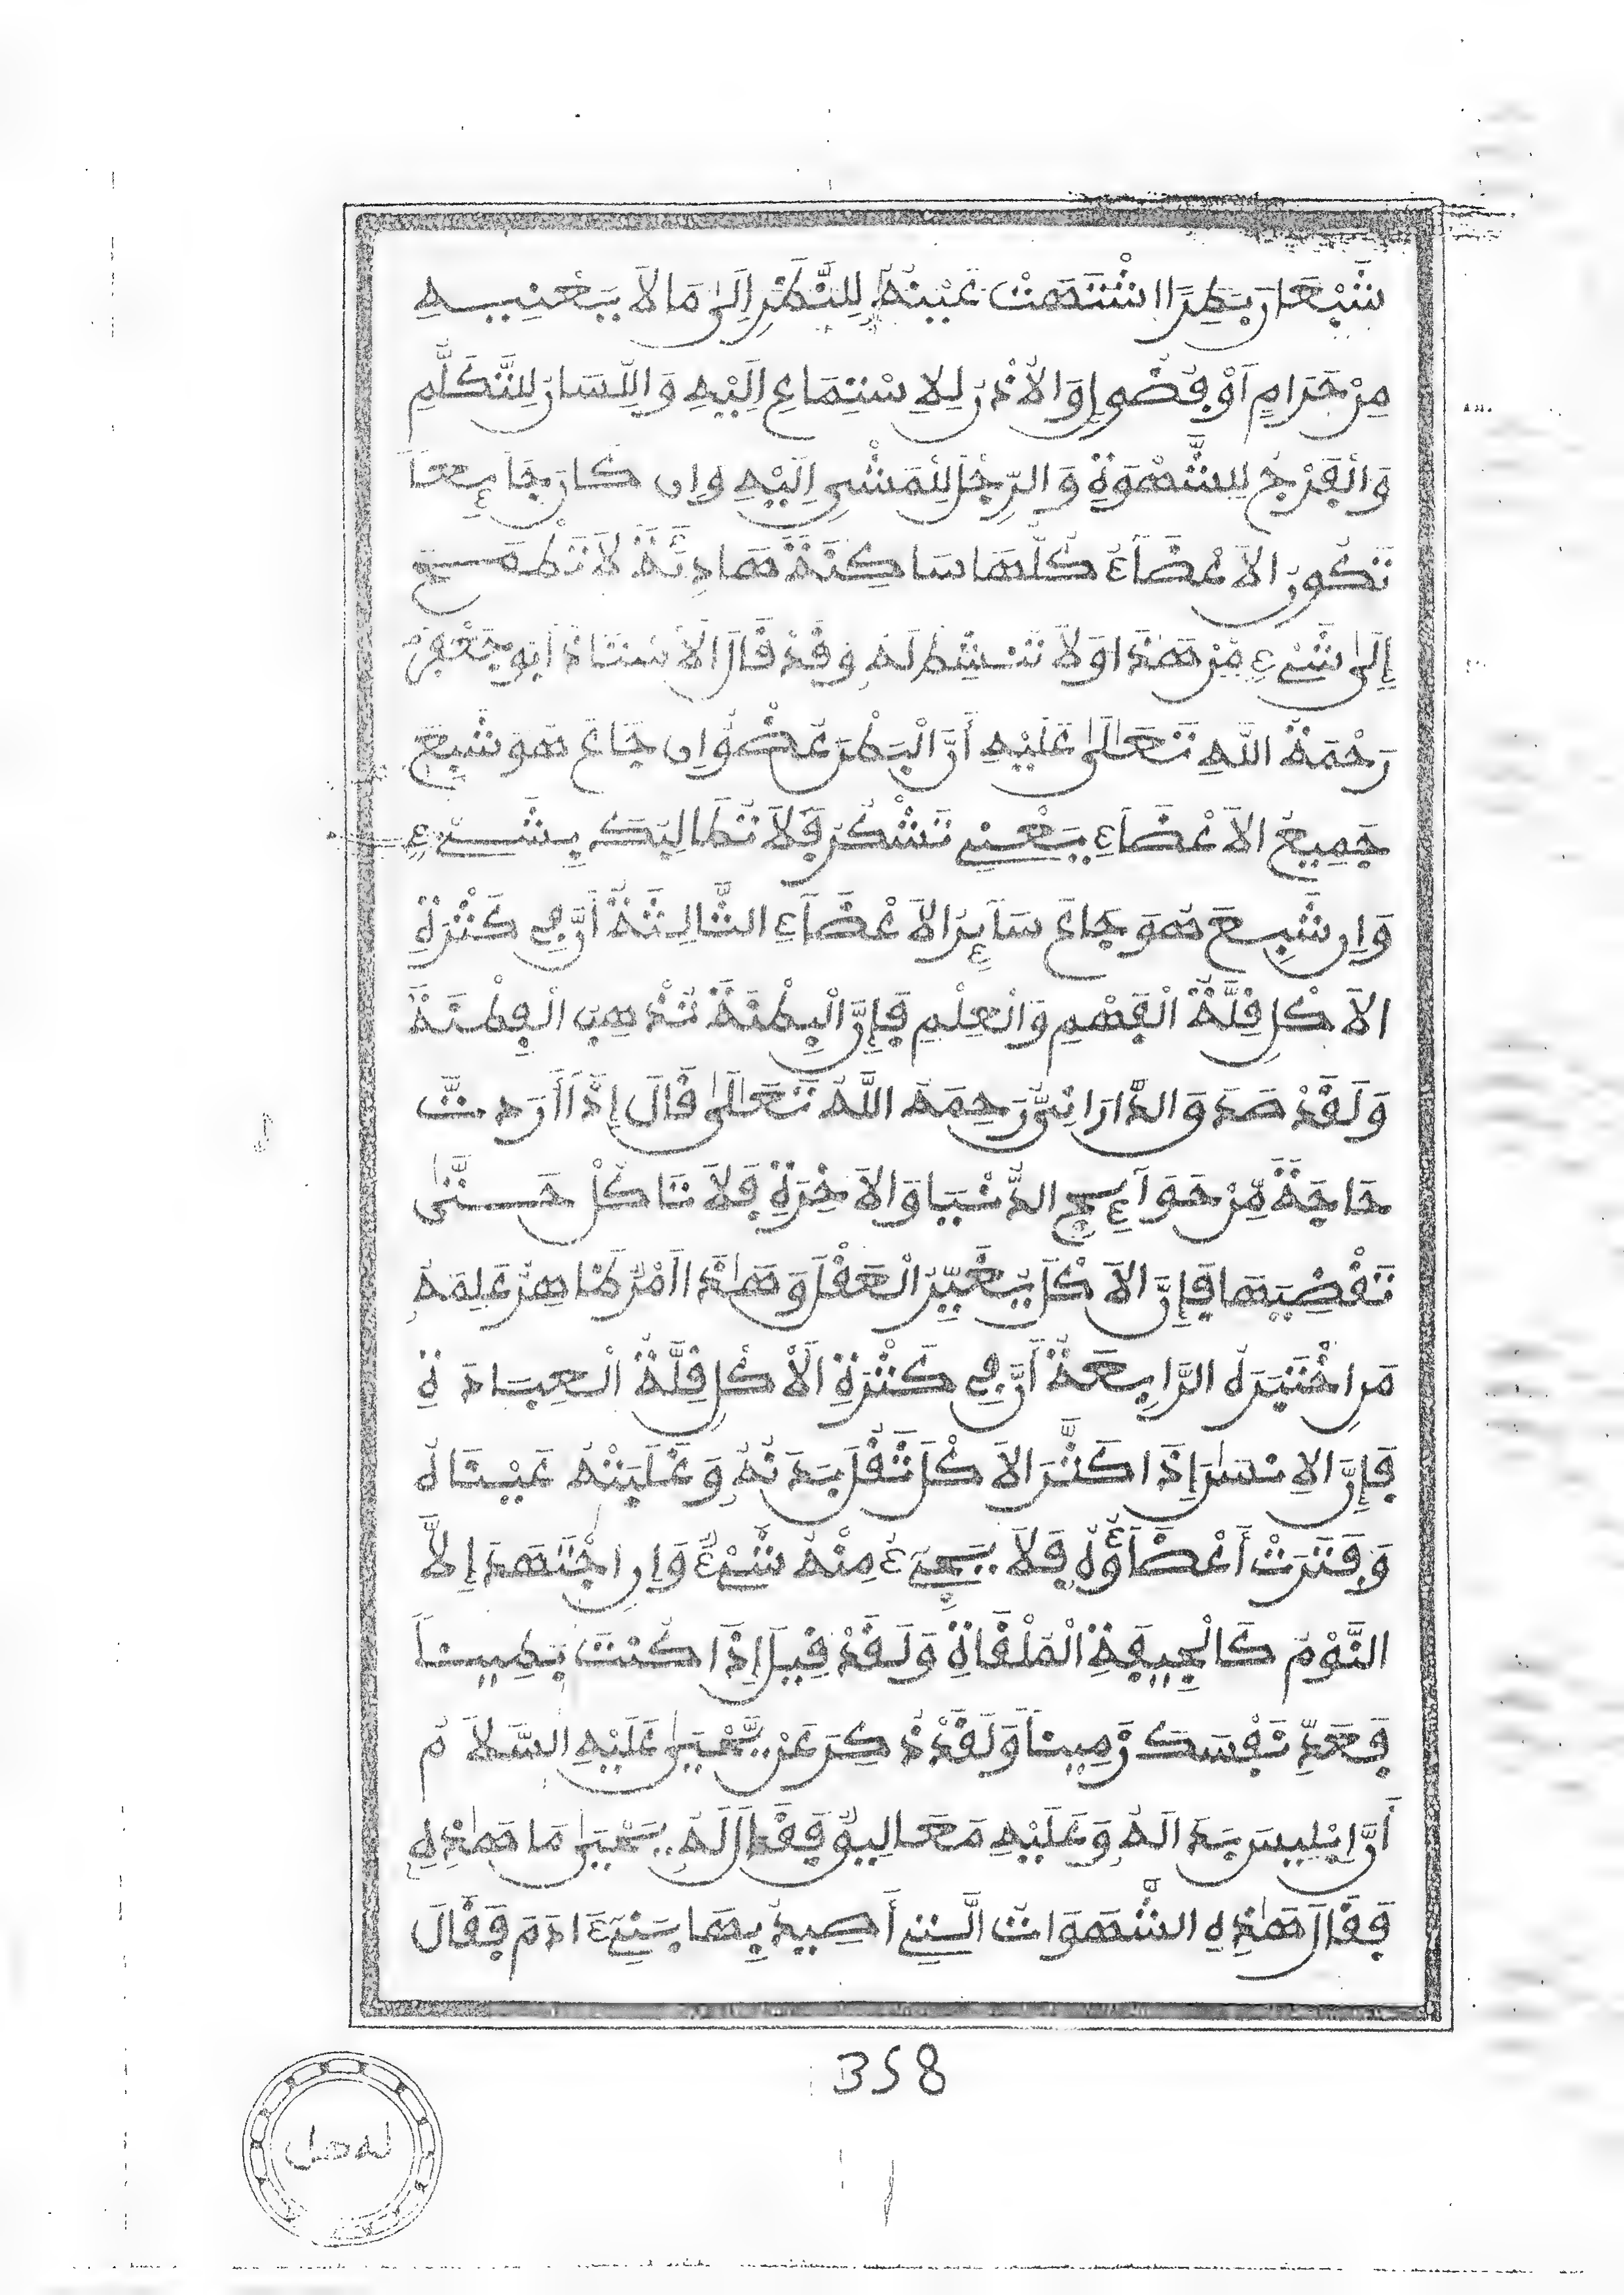 شَبْعَان بَطِرًا اشْتَهَتْ عَيْنُهُ لِلنَّظَرِ إِلَىٰ مَا لَا يَعْنِيهِ
مِنْ حَرَامٍ أَوْ فُضُولٍ وَالْأُذْنُ لِلِاسْتِمَاعِ إِلَيْهِ وَاللِّسَانُ لِلتَّكَلُّمِ
وَالْفَرْجُ لِلشَّهْوَةِ وَالرِّجْلُ لِلْمَشْيِ إِلَيْهِ وَإِن كَانَ جَآئِعًا
تَكُونُ الْأَعْضَآءُ كُلُّهَا سَاكِنَةً هَادِئَةً لَا تَطْمَحُ
إِلَىٰ شَيْءٍ مِّنْ هَٰذَا وَلَا تَنْشَطُ لَهُ وَقَدْ قَالَ الْأُسْتَاذُ أَبُو جَعْفَرٍ
رَحْمَةُ اللَّهِ تَعَالَىٰ عَلَيْهِ أَنَّ الْبَطْنَ عُضْوٌ إِن جَاعَ هُوَ شَبِعَ
جَمِيعُ الْأَعْضَآءِ يَعْنِي تَسْكُنُ فَلَا تُطَالِبُكَ بِشَيْءٍ
وَإِن شَبِعَ هُوَ جَاعَ سَآئِرُ الْأَعْضَآءِ الثَّالِثَةُ أَنَّ فِي كَثْرَةِ
الْأَكْلِ قِلَّةَ الْفَهْمِ وَالْعِلْمِ فَإِنَّ الْبِطْنَةَ تُذْهِبُ الْفِطْنَةَ
وَلَقَدْ صَدَقَ الدَّارَانِيُّ رَحِمَهُ اللَّهُ تَعَالَىٰ قَالَ إِذَا أَرَدتَّ
حَاجَةً مِّنْ حَوَآئِجِ الدُّنْيَا وَالْآخِرَةِ فَلَا تَاكُلْ حَتَّىٰ
تَقْضِيَهَا فَإِنَّ الْأَكْلَ يُغَيِّرُ الْعَقْلَ وَهَٰذَا أَمْرٌ ظَاهِرٌ عَلِمَهُ
مَنِ اخْتَبَرَهُ الرَّابِعَةُ أَنَّ فِي كَثْرَةِ الْأَكْلِ قِلَّةَ الْعِبَادَةِ
فَإِنَّ الْإِنسَٰنَ إِذَا كَثَّرَ الْأَكْلَ ثَقُلَ بَدَنُهُ وَغَلَبَتْهُ عَيْنَاهُ
وَفَتَرَتْ أَعْضَآؤُهُ فَلَا يَجِيءُ مِنْهُ شَيْءٌ وَإِنِ اجْتَهَدَ إِلَّا
النَّوْمَ كَالْجِيفَةِ الْمُلْقَاةِ وَلَقَدْ قِيلَ إِذَا كُنْتَ بَطِينًا
فَعُدَّ نَفْسَكَ زَمِينًا وَلَقَدْ ذُكِرَ عَنْ يَّحْيَىٰ عَلَيْهِ السَّلَامُ
أَنَّ إِبْلِيسَ بَدَا لَهُ وَعَلَيْهِ مَعَالِيقُ فَقَالَ لَهُ يَحْيَىٰ مَا هَٰذِهِ
فَقَالَ هَٰذِهِ الشَّهَوَاتُ الَّتِي أَصِيدُ بِهَا بَنِي ءَادَمَ فَقَالَ
358